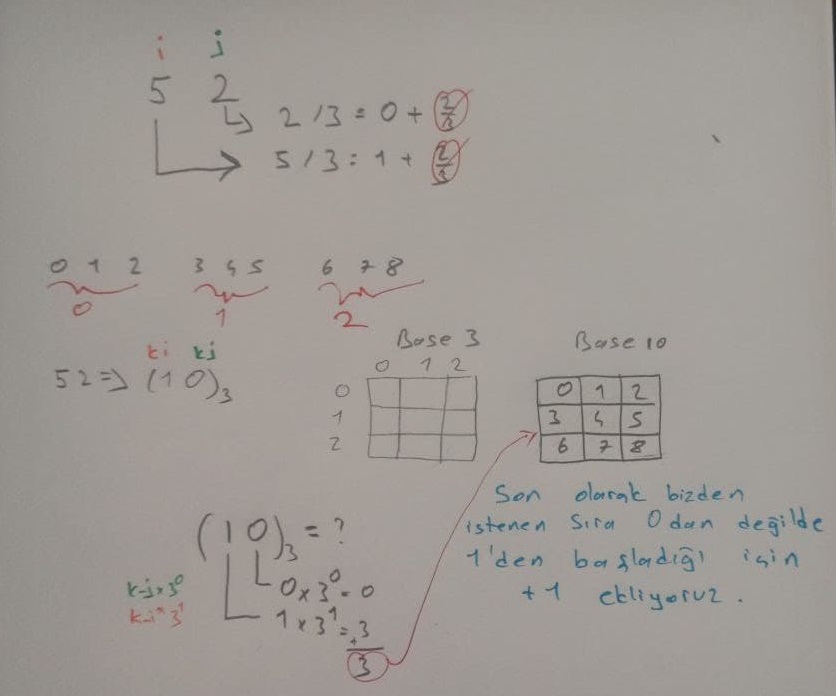 i j
5 2
2 / 3 = 0 + 2/3
5 / 3 = 1 + 2/3
0 1 2 3 4 5 6 7 8
0 1 2
ki kj
52 => (1 0)3
Base 3
0 1 2
0
1
2
Base 10
0 1 2
3 4 5
6 7 8
(1 0)3 = ?
kj x 3^0 0 x 3^0 = 0
ki x 3^1 1 x 3^1 = 3
+
3
Son olarak bizden
istenen sıra 0 dan değilde
1'den başladığı için
+1 ekliyoruz.